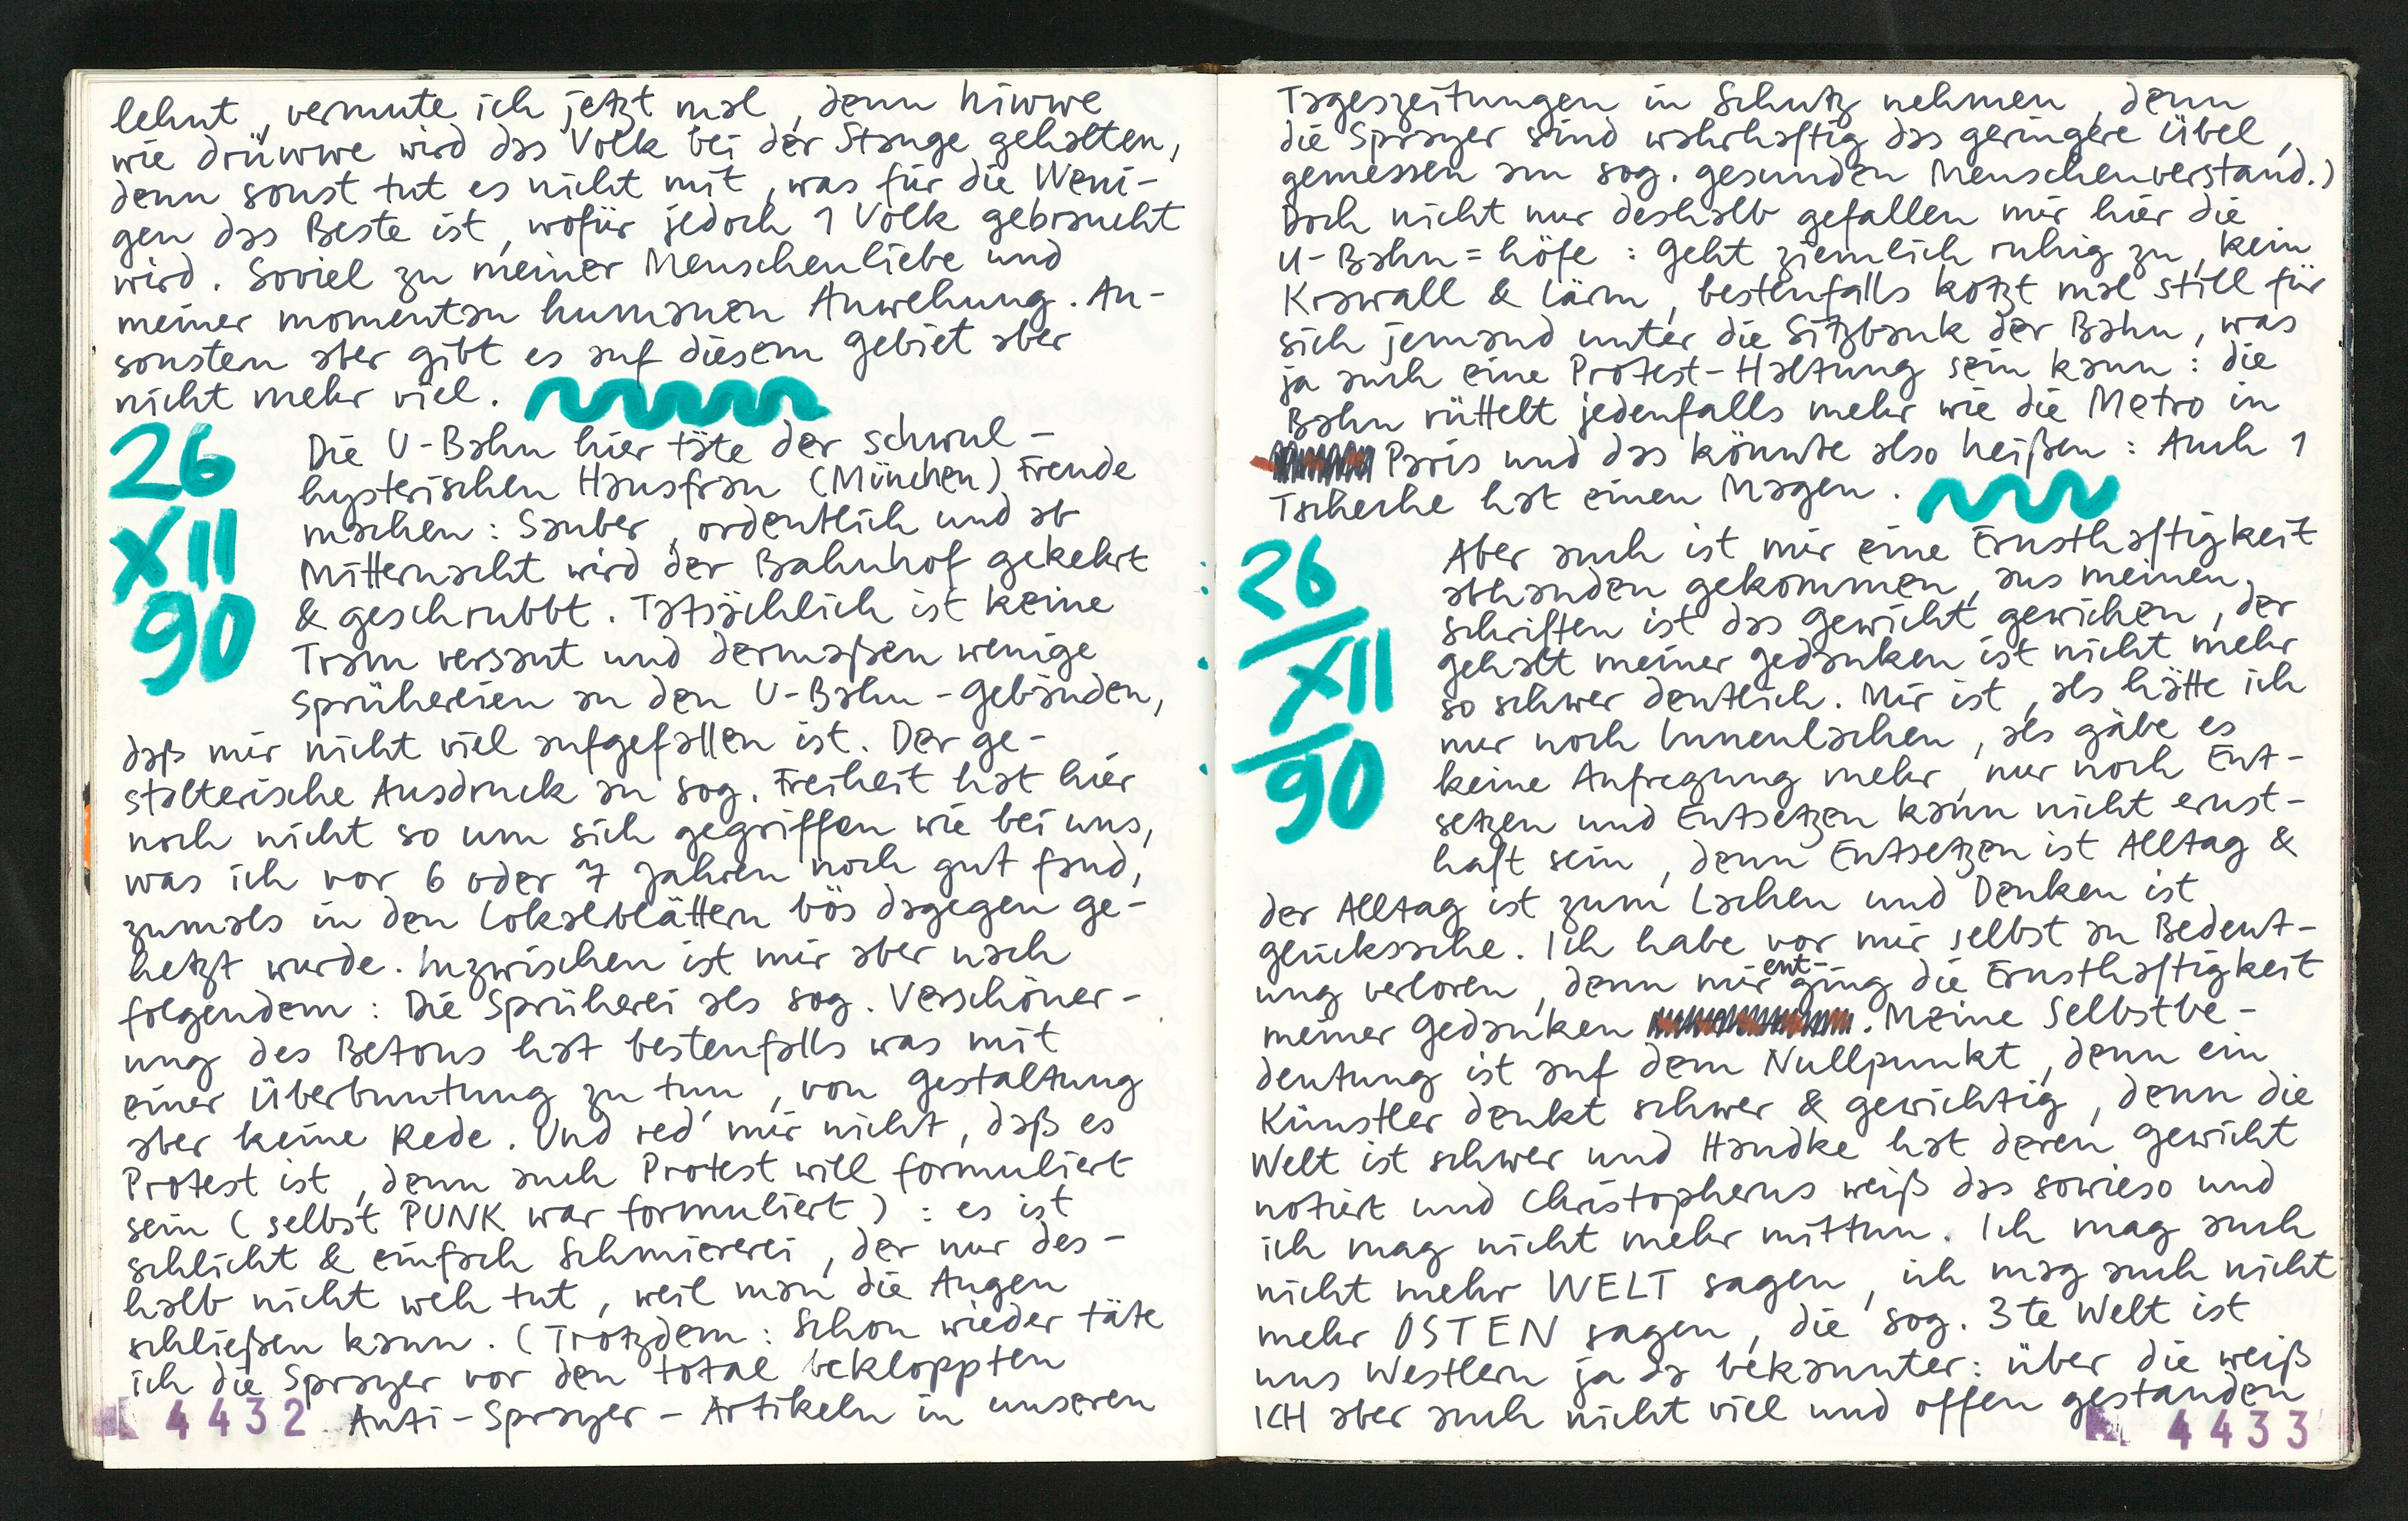 lehnt, vermute ich jetzt mal, denn hiwwe
wie drüwwe wird das Volk bei der Stange gehalten,
denn sonst tut es nicht mit, was für die Weni-
gen das Beste ist, wofür jedoch 1 Volk gebraucht
wird. Soviel zu meiner Menschenliebe und
meiner momentan humanen Anwehung. An-
sonsten aber gibt es auf diesem Gebiet aber
nicht mehr viel.
26
XII
90
Die U-Bahn hier täte der schwul-
hysterischen Hausfrau (München) Freude
machen: Sauber, ordentlich und ab
Mitternacht wird der Bahnhof gekehrt
& geschrubbt. Tatsächlich ist keine
Tram versaut und dermaßen wenige
Sprühereien an den U-Bahn-Gebäuden,
daß mir nicht viel aufgefallen ist. Der ge-
stalterische Ausdruck an sog. Freiheit hat hier
noch nicht so um sich gegriffen wie bei uns,
was ich vor 6 oder 7 Jahren noch gut fand,
zumals in den Lokalblättern bös dagegen ge-
hetzt wurde. Inzwischen ist mir aber nach
folgendem: Die Sprüherei als sog. Verschöner-
ung des Betons hat bestenfalls was mit
einer Überbuntung zu tun, von Gestaltung
aber keine Rede. Und red' mir nicht, daß es
Protest ist, denn auch Protest will formuliert
sein (selbst PUNK war formuliert): es ist
schlicht & einfach Schmiererei, der nur des-
halb nicht weh tut, weil man die Augen
schließen kann. (Trotzdem: Schon wieder täte
ich die Sprayer vor den total bekloppten
4432 Anti-Sprayer-Artikeln in unseren
Tageszeitungen in Schutz nehmen, denn
die Sprayer sind wahrhaftig das geringere Übel,
gemessen am sog. gesunden Menschenverstand.)
Doch nicht nur deshalb gefallen mir hier die
U-Bahn=höfe: Geht ziemlich ruhig zu, kein
Krawall & Lärm, bestenfalls kotzt mal still für
sich jemand unter die Sitzbank der Bahn, was
ja auch eine Protest-Haltung sein kann: die
Bahn rüttelt jedenfalls mehr wie die Metro in
Paris und das könnte also heißen: Auch 1
Tscheche hat einen Magen.
26
XII
90
Aber auch ist mir eine Ernsthaftigkeit
abhanden gekommen, aus meinen
Schriften ist das Gewicht gewichen, der
Gehalt meiner Gedanken ist nicht mehr
so schwer deutlich. Mir ist, als hätte ich
nur noch Innenlachen, als gäbe es
keine Aufregung mehr, nur noch Ent-
setzen und Entsetzen kann nicht ernst-
haft sein, denn Entsetzen ist Alltag &
der Alltag ist zum Lachen und Denken ist
Glückssache. Ich habe vor mir selbst an Bedeut-
ung verloren, denn mir ent-ging die Ernsthaftigkeit
meiner Gedanken. Meine Selbstbe-
deutung ist auf dem Nullpunkt, denn ein
Künstler denkt schwer & gewichtig, denn die
Welt ist schwer und Handke hat deren Gewicht
notiert und Christopherus weiß das sowieso und
ich mag nicht mehr mittun. Ich mag auch
nicht mehr WELT sagen, ich mag auch nicht
mehr OSTEN sagen, die sog. 3te Welt ist
uns Westlern ja da bekannter: über die weiß
ICH aber auch nicht viel und offen gestanden
4433